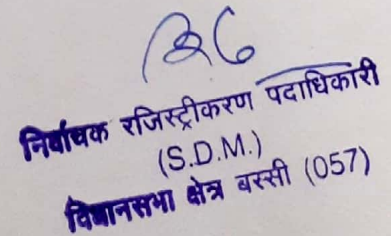 निर्वाचक रजिस्ट्रीकरण पदाधिकारी
(S.D.M.)
विधानसभा क्षेत्र बस्सी (057)